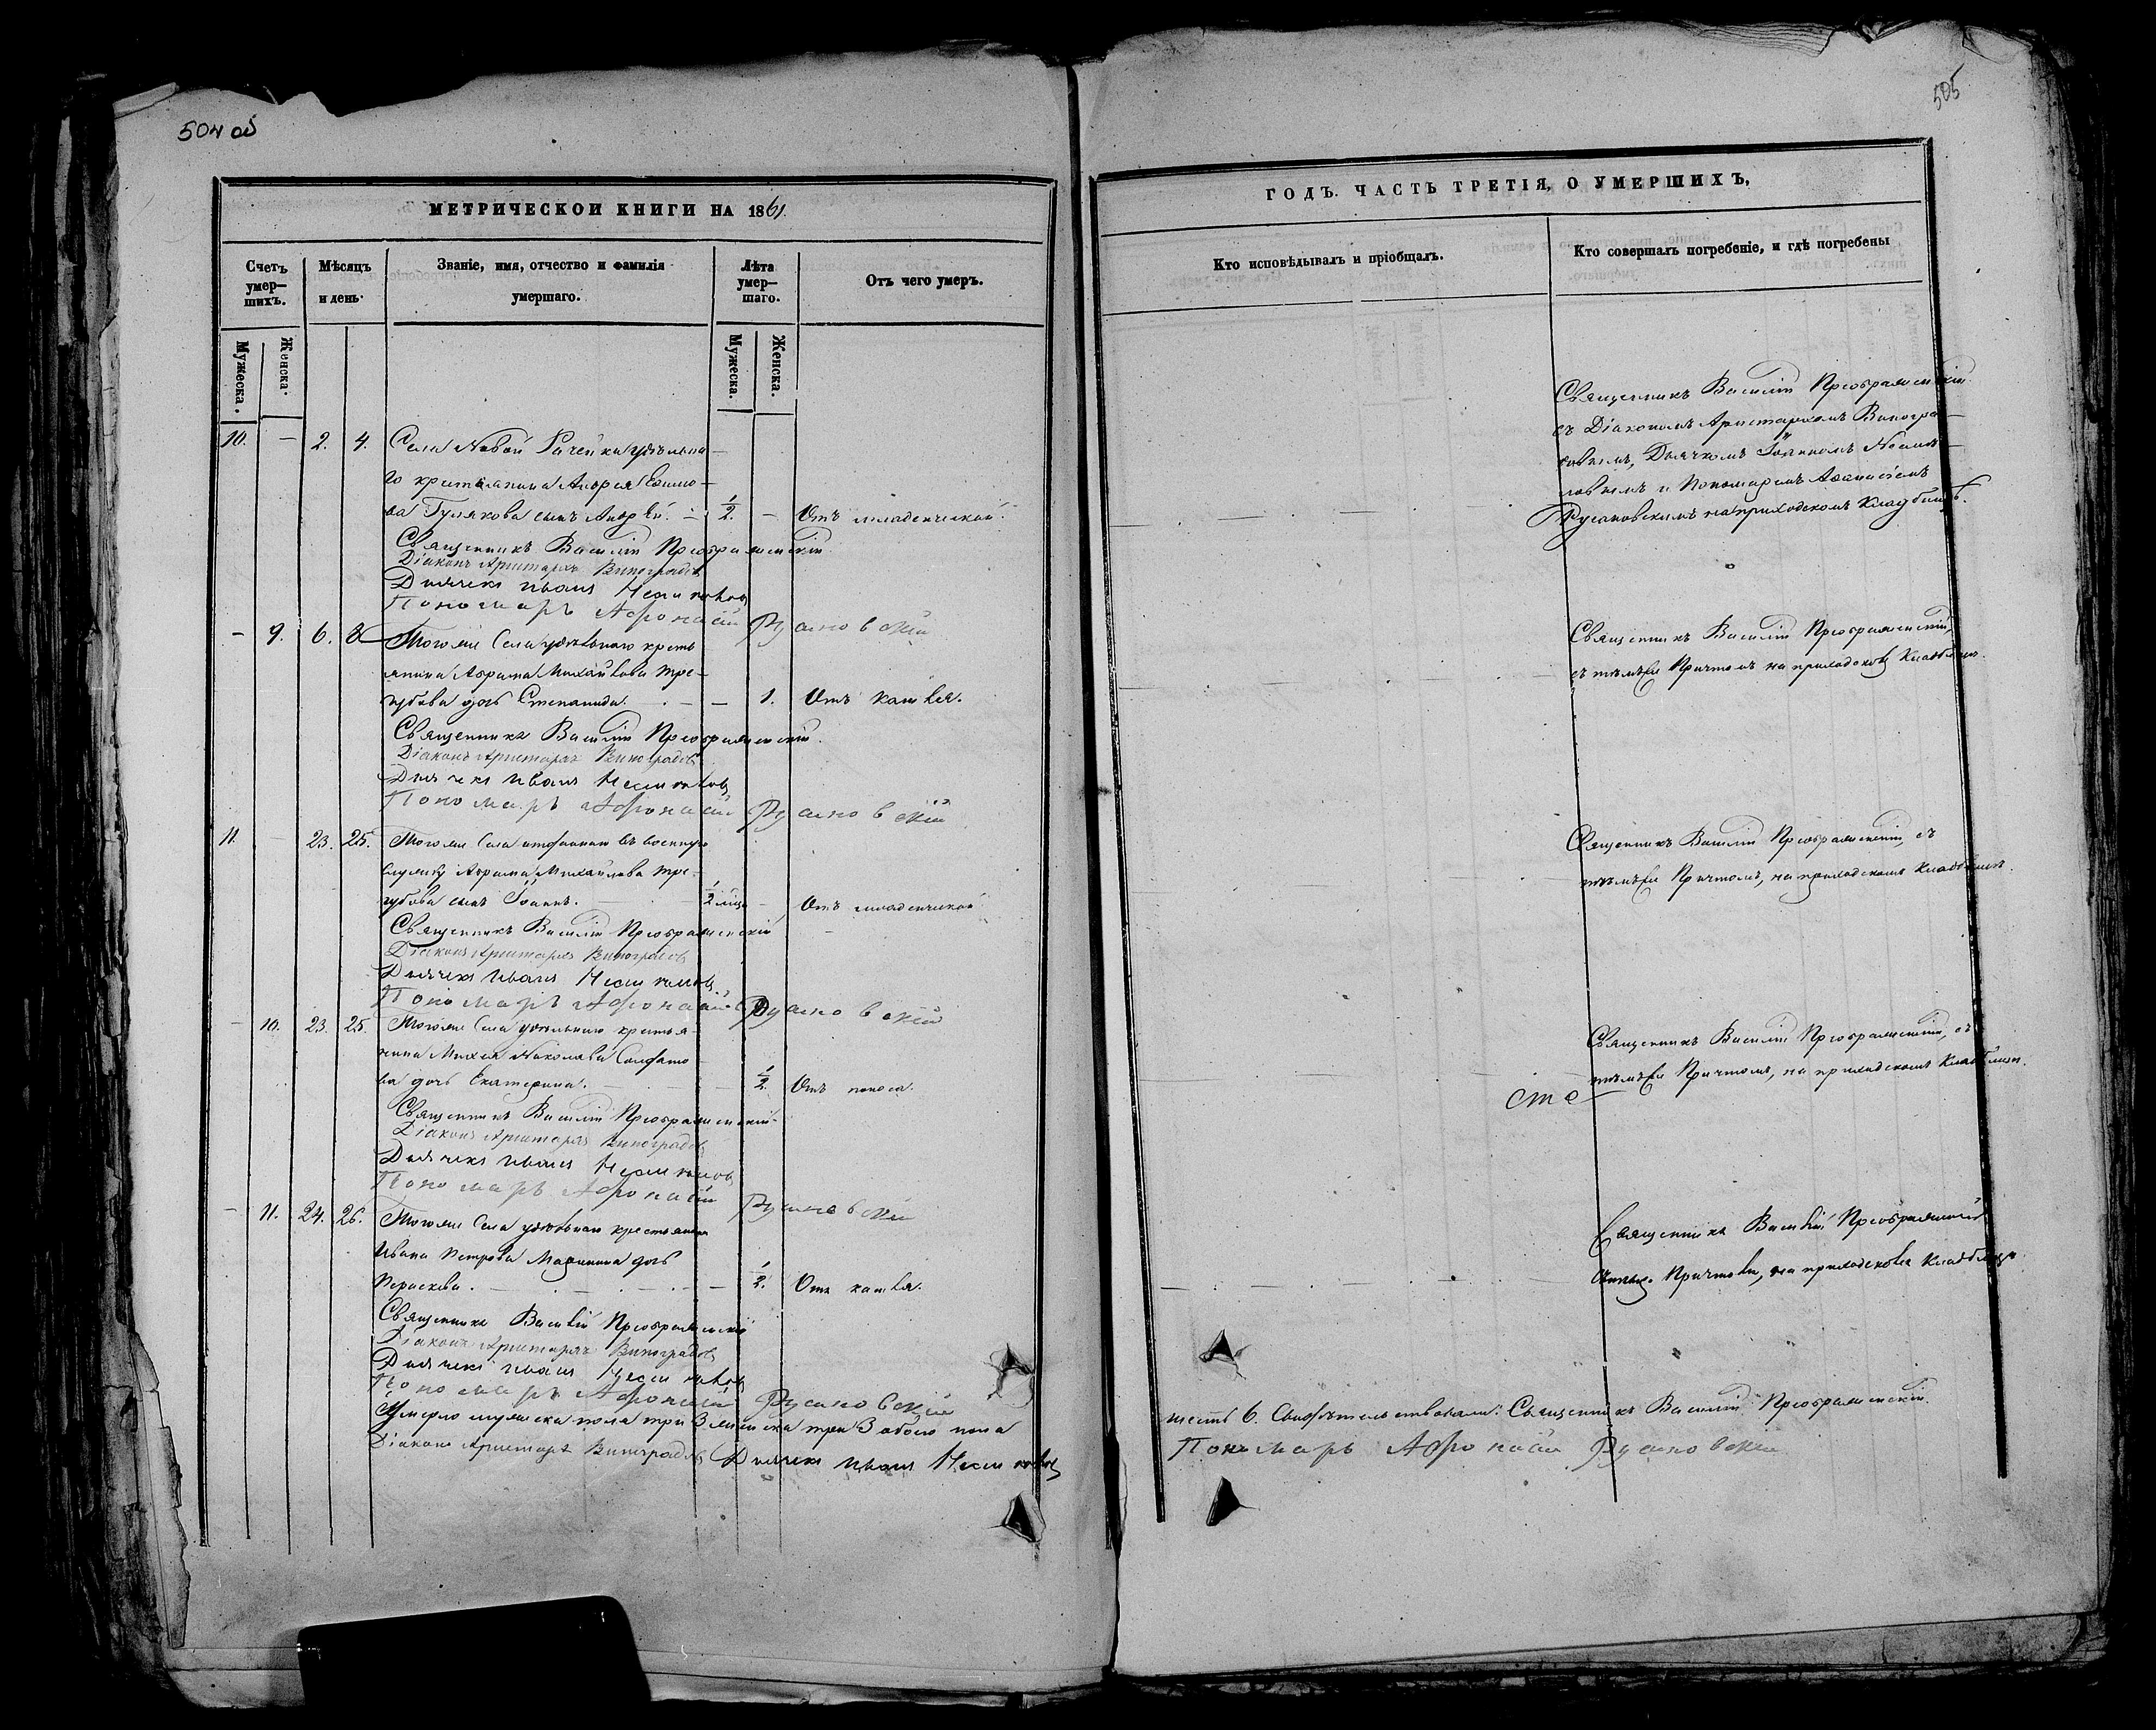 504 об
МЕТРИЧЕСКОИ КНИГИ НА 1861.
Счетъ умер-шихъ.
Мѣсяцъ и день.
Званіе, имя, отчество и фамилія умершаго.
Лѣта умер-шаго.
Отъ чего умеръ.
Мужеска.
Женска.
Мужеска.
Женска.
10. – 2. 4. Села Новой Рачейки удѣльна-
го крестьянина Андрея
ва Гулякова сынъ Андрей. 1/2. – Отъ младенческой.
Священникъ Василій Преображенскій
Діаконъ Аристархъ Виноградовъ
Дьячекъ Иванъ
Пономарь Афонасій Русановскій
– 9. 6. 8. Тогоже Села удѣльнаго кресть
янина Абрама Михайлова Тре-
губова дочь Степанида. – 1. Отъ кашля.
Священникъ Василій Преображенскій.
Діаконъ Аристархъ Виноградовъ
Дьячекъ Иванъ
Пономарь Афонасій Русановскій
11. – 23. 25. Тогоже Села отданнаго въ военную
службу Абрама Михайлова Тре-
губова сынъ Іоаннъ. 1/2 – Отъ младенческой
Священникъ Василій Преображенскій
Діаконъ Аристархъ Виноградовъ
Дьячекъ Иванъ
Пономарь Афонасій Русановскій
– 10. 23. 25. Тогоже Села удѣльнаго крестья-
нина Николаева Солдато
ва дочь Екатерина. 1/2. Отъ поноса.
Священникъ Василій Преображенскій.
Діаконъ Аристархъ Виноградовъ
Дьячекъ Иванъ
Пономарь Афонасій Русановскій
– 11. 24. 26. Тогоже Села удѣльнаго крестьянина
Ивана Петрова дочь
Параскева. – 1/2. Отъ кашля.
Священникъ Василій Преображенскій
Діаконъ Аристархъ Виноградовъ
Дьячекъ Иванъ
Пономарь Афонасій Русановскій
Умерло мужеска пола три 3 женска три 3 обоего пола
Діаконъ Аристархъ Виноградовъ Дьячекъ Иванъ
505
ГОДЪ. ЧАСТЬ ТРЕТІЯ, О УМЕРШИХЪ,
Кто исповѣдывалъ и пріобщалъ.
Кто совершалъ погребеніе, и гдѣ погребены
Священникъ Василій Преображенскій
съ Діакономъ Аристархомъ Виногра-
довымъ, Дьячкомъ Іоанномъ
и Пономаремъ Афанасіемъ
Русановскимъ на приходскомъ кладбищѣ.
Священникъ Василій Преображенскій,
съ тѣмъже Причтомъ на приходскомъ кладбищѣ.
Священникъ Василій Преображенскій, съ
тѣмъже Причтомъ, на приходскомъ кладбищѣ.
Священникъ Василій Преображенскій, съ
тѣмъже Причтомъ, на приходскомъ кладбищѣ.
Священникъ Василій Преображенскій
Причтомъ, на приходскомъ кладбищѣ
шесть 6. Свидѣтельствовали: Священникъ Василій Преображенскій.
Пономарь Афонасій Русановскій